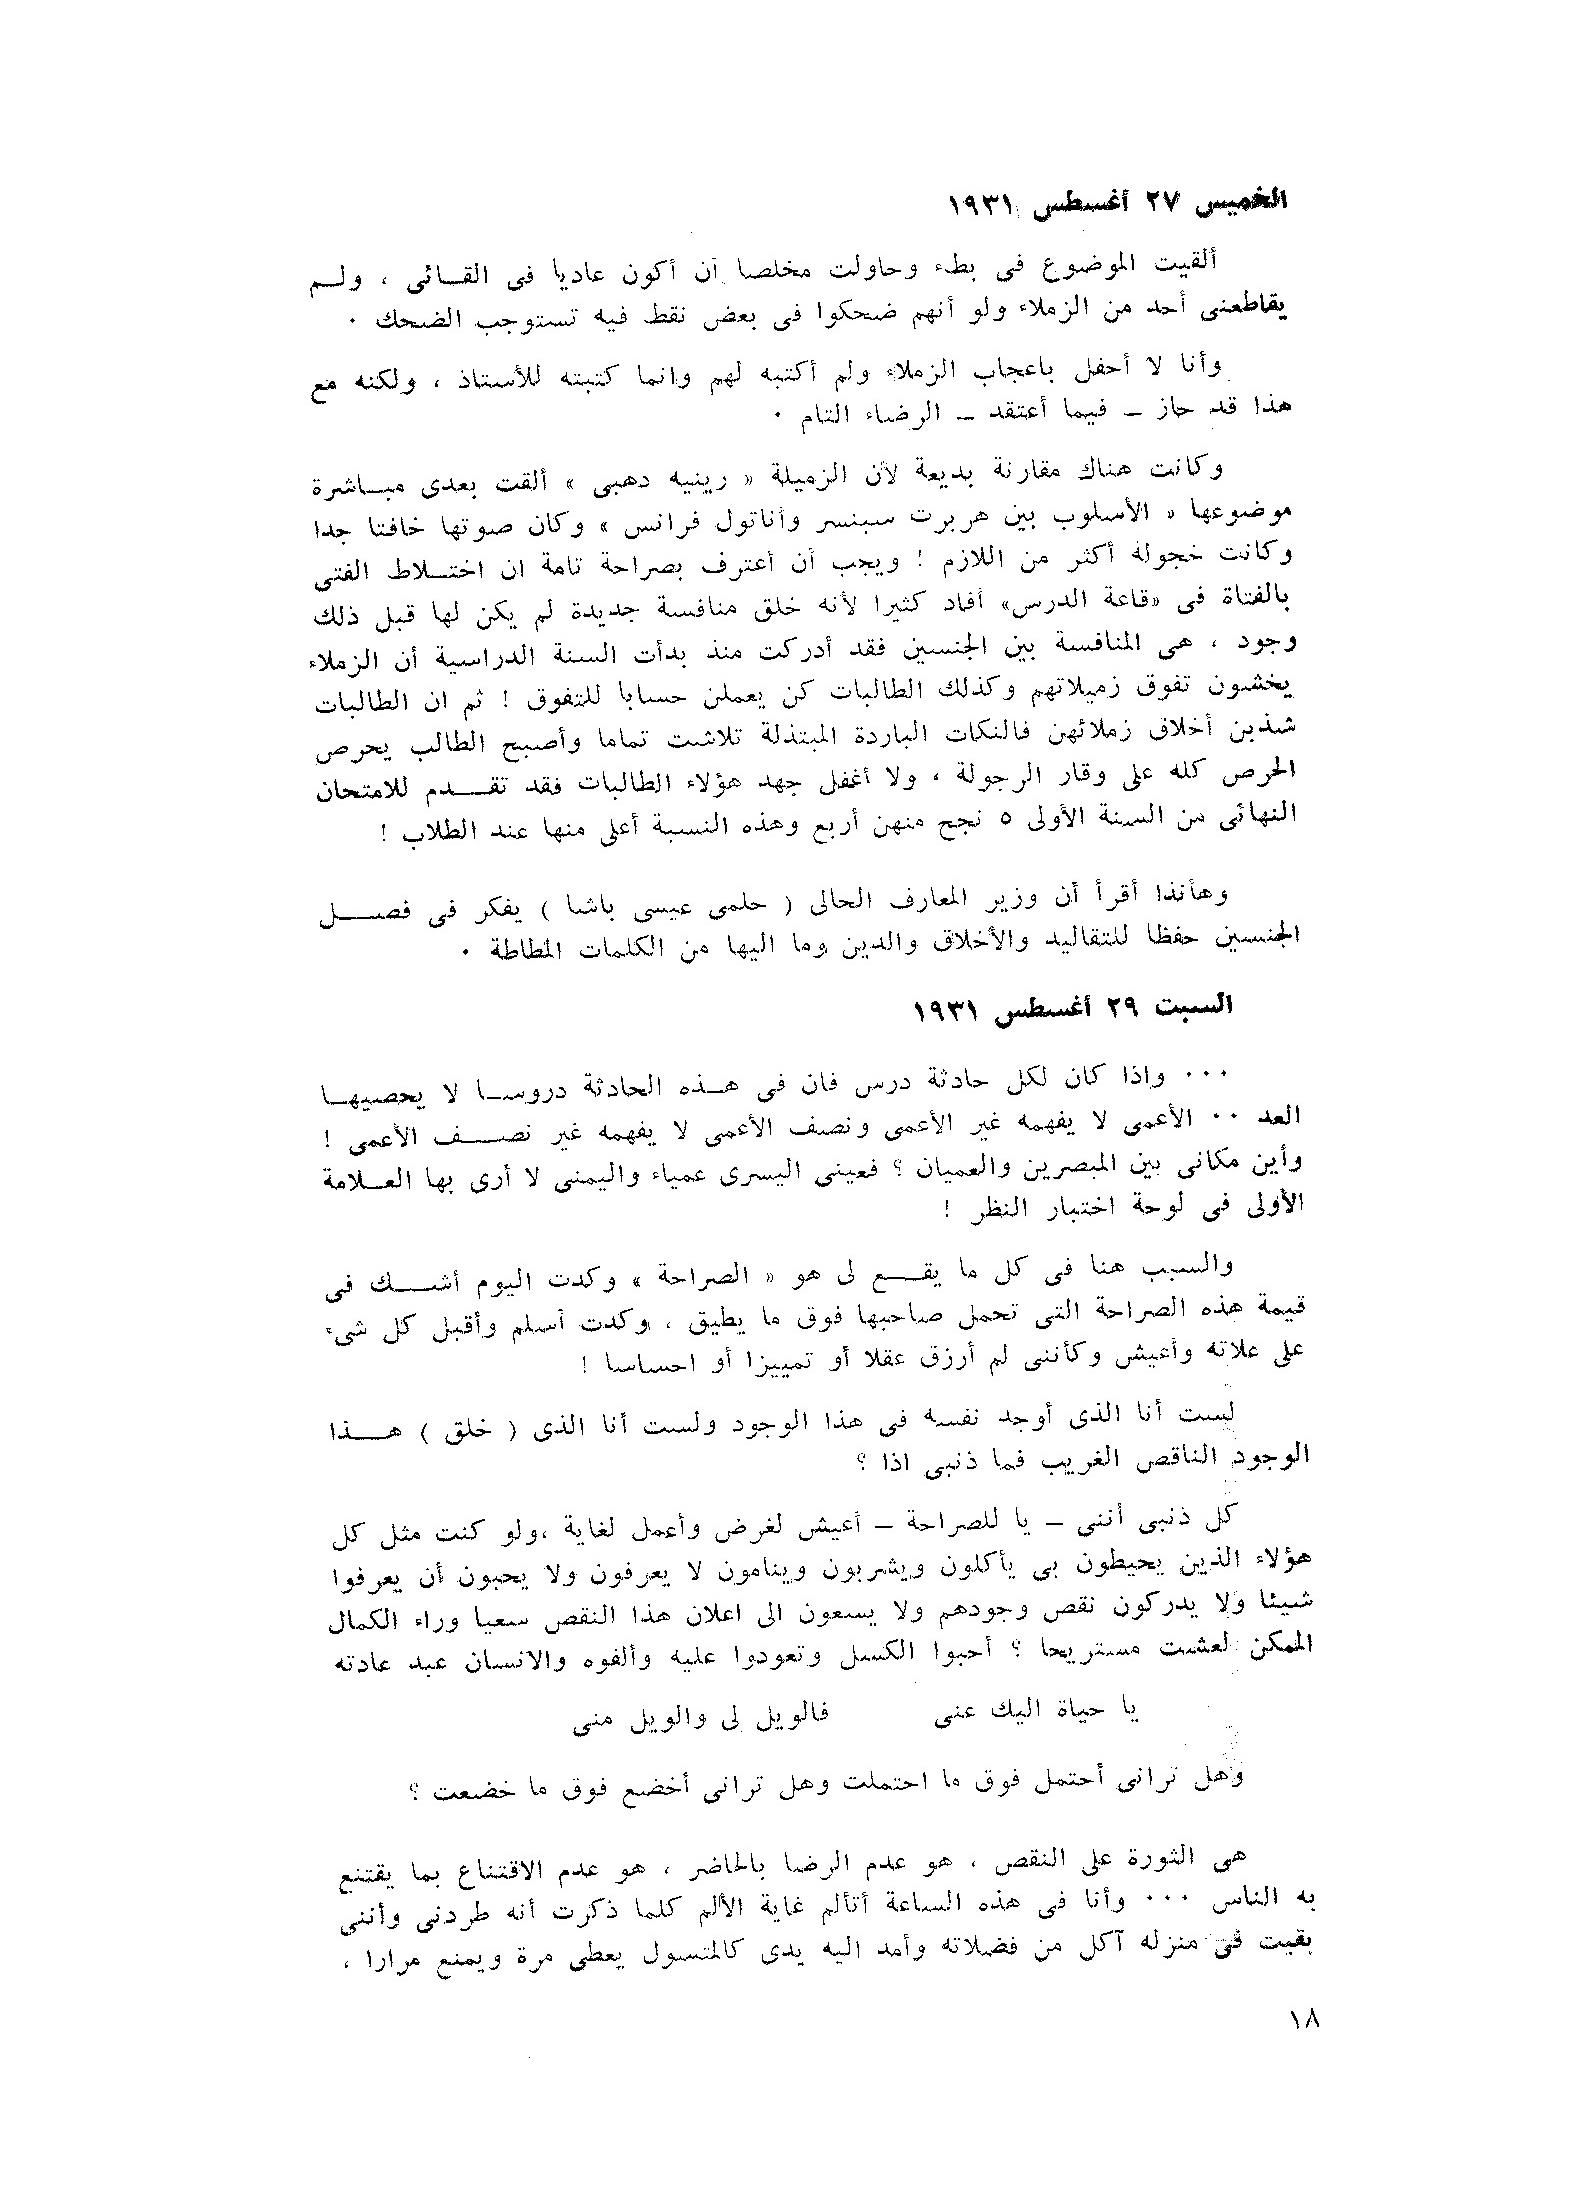 الخميس ٢٧ أغسطس ١٩٣١
ألقيت الموضوع فى بطء وحاولت مخلصا أن أكون عاديا فى القائى ، ولم
يقاطعنى أحد من الزملاء ولو أنهم ضحكوا فى بعض نقط فيه تستوجب الضحك ٠
وأنا لا أحفل باعجاب الزملاء ولم أكتبه لهم وانما كتبته للأستاذ ، ولكنه مع
هذا قد حاز – فيما أعتقد – الرضاء التام ٠
وكانت هناك مقارنة بديعة لأن الزميلة « رينيه دهبى » ألقت بعدى مباشرة
موضوعها « الأسلوب بين هربرت سبنسر وأناتول فرانس » وكان صوتها خافتا جدا
وكانت خجولة أكثر من اللازم ! ويجب أن أعترف بصراحة تامة ان اختلاط الفتى
بالفتاة فى «قاعة الدرس» أفاد كثيرا لأنه خلق منافسة جديدة لم يكن لها قبل ذلك
وجود ، هى المنافسة بين الجنسين فقد أدركت منذ بدأت السنة الدراسية أن الزملاء
يخشون تفوق زميلاتهم وكذلك الطالبات كن يعملن حسابا للتفوق ! ثم ان الطالبات
شذبن أخلاق زملائهن فالنكات الباردة المبتذلة تلاشت تماما وأصبح الطالب يحرص
الحرص كله على وقار الرجولة ، ولا أغفل جهد هؤلاء الطالبات فقد تقدم للامتحان
النهائى من السنة الأولى ٥ نجح منهن أربع وهذه النسبة أعلى منها عند الطلاب !
وهأنذا أقرأ أن وزير المعارف الحالى ( حلمى عيسى باشا ) يفكر فى فصل
الجنسين حفظا للتقاليد والأخلاق والدين وما اليها من الكلمات المطاطة ٠
السبت ٢٩ أغسطس ١٩٣١
٠٠٠ واذا كان لكل حادثة درس فان فى هذه الحادثة دروسا لا يحصيها
العد ٠٠ الأعمى لا يفهمه غير الأعمى ونصف الأعمى لا يفهمه غير نصف الأعمى !
وأين مكانى بين المبصرين والعميان ؟ فعينى اليسرى عمياء واليمنى لا أرى بها العلامة
الأولى فى لوحة اختبار النظر !
والسبب هنا فى كل ما يقع لى هو « الصراحة » وكدت اليوم أشك فى
قيمة هذه الصراحة التى تحمل صاحبها فوق ما يطيق ، وكدت أسلم وأقبل كل شىء
على علاته وأعيش وكأننى لم أرزق عقلا أو تمييزا أو احساسا !
لست أنا الذى أوجد نفسه فى هذا الوجود ولست أنا الذى ( خلق ) هذا
الوجود الناقص الغريب فما ذنبى اذا ؟
كل ذنبى أننى – يا للصراحة – أعيش لغرض وأعمل لغاية ،ولو كنت مثل كل
هؤلاء الذين يحيطون بى يأكلون ويشربون وينامون لا يعرفون ولا يحبون أن يعرفوا
شيئا ولا يدركون نقص وجودهم ولا يسعون الى اعلان هذا النقص سعيا وراء الكمال
الممكن لعشت مستريحا ؟ أحبوا الكسل وتعودوا عليه وألفوه والانسان عبد عادته
يا حياة اليك عنى فالويل لى والويل منى
وهل ترانى أحتمل فوق ما احتملت وهل ترانى أخضع فوق ما خضعت ؟
هى الثورة على النقص ، هو عدم الرضا بالحاضر ، هو عدم الاقتناع بما يقتنع
به الناس ٠٠٠ وأنا فى هذه الساعة أتألم غاية الألم كلما ذكرت أنه طردنى وأننى
بقيت فى منزله آكل من فضلاته وأمد اليه يدى كالمتسول يعطى مرة ويمنع مرارا ،
١٨